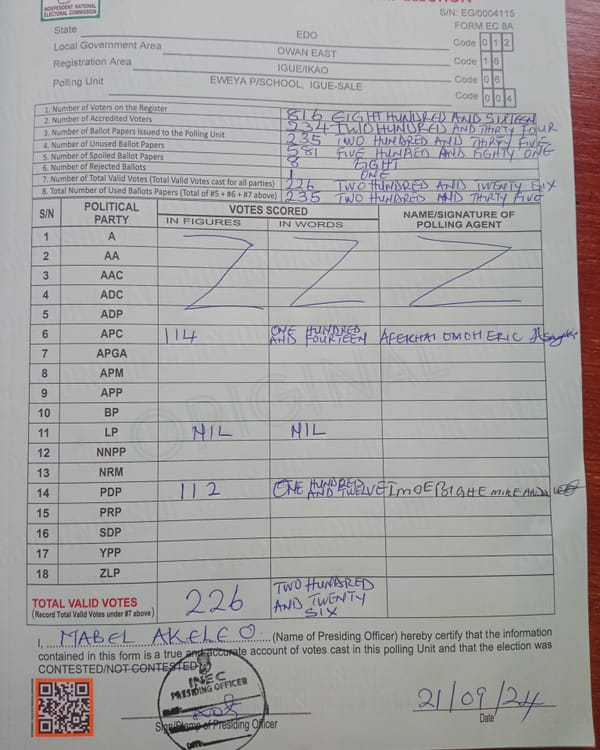 INDEPENDENT NATIONAL
ELECTORAL COMMISSION
S/N: EG/0004115
FORM EC 8A
State EDO Code 0 1 2
Local Government Area OWAN EAST Code 1 6
Registration Area IGUE/IKAO Code 0 6
Polling Unit EWEYA P/SCHOOL, IGUE-SALE Code 0 0 4
1. Number of Voters on the Register 816 EIGHT HUNDRED AND SIXTEEN
2. Number of Accredited Voters 234 TWO HUNDRED AND THIRTY FOUR
3. Number of Ballot Papers Issued to the Polling Unit 235 TWO HUNDRED AND THIRTY FIVE
4. Number of Unused Ballot Papers 581 FIVE HUNDRED AND EIGHTY ONE
5. Number of Spoiled Ballot Papers 8 EIGHT
6. Number of Rejected Ballots 1 ONE
7. Number of Total Valid Votes (Total Valid Votes cast for all parties) 226 TWO HUNDRED AND TWENTY SIX
8. Total Number of Used Ballots Papers (Total of #5 + #6 + #7 above) 235 TWO HUNDRED AND THIRTY FIVE
S/N POLITICAL PARTY VOTES SCORED NAME/SIGNATURE OF POLLING AGENT
IN FIGURES IN WORDS
1 A
2 AA
3 AAC
4 ADC
5 ADP
6 APC 114 ONE HUNDRED AND FOURTEEN AFEKHAI OMOH ERIC
7 APGA
8 APM
9 APP
10 BP
11 LP NIL NIL
12 NNPP
13 NRM
14 PDP 112 ONE HUNDRED AND TWELVE MIKE
15 PRP
16 SDP
17 YPP
18 ZLP
ORIGINAL
TOTAL VALID VOTES 226 TWO HUNDRED AND TWENTY SIX
(Record Total Valid Votes under #7 above)
I, MABEL AKELE O (Name of Presiding Officer) hereby certify that the information
contained in this form is a true and accurate account of votes cast in this polling Unit and that the election was
CONTESTED/NOT CONTESTED
INEC
PRESIDING OFFICER
21/09/24
Sign/Stamp of Presiding Officer Date